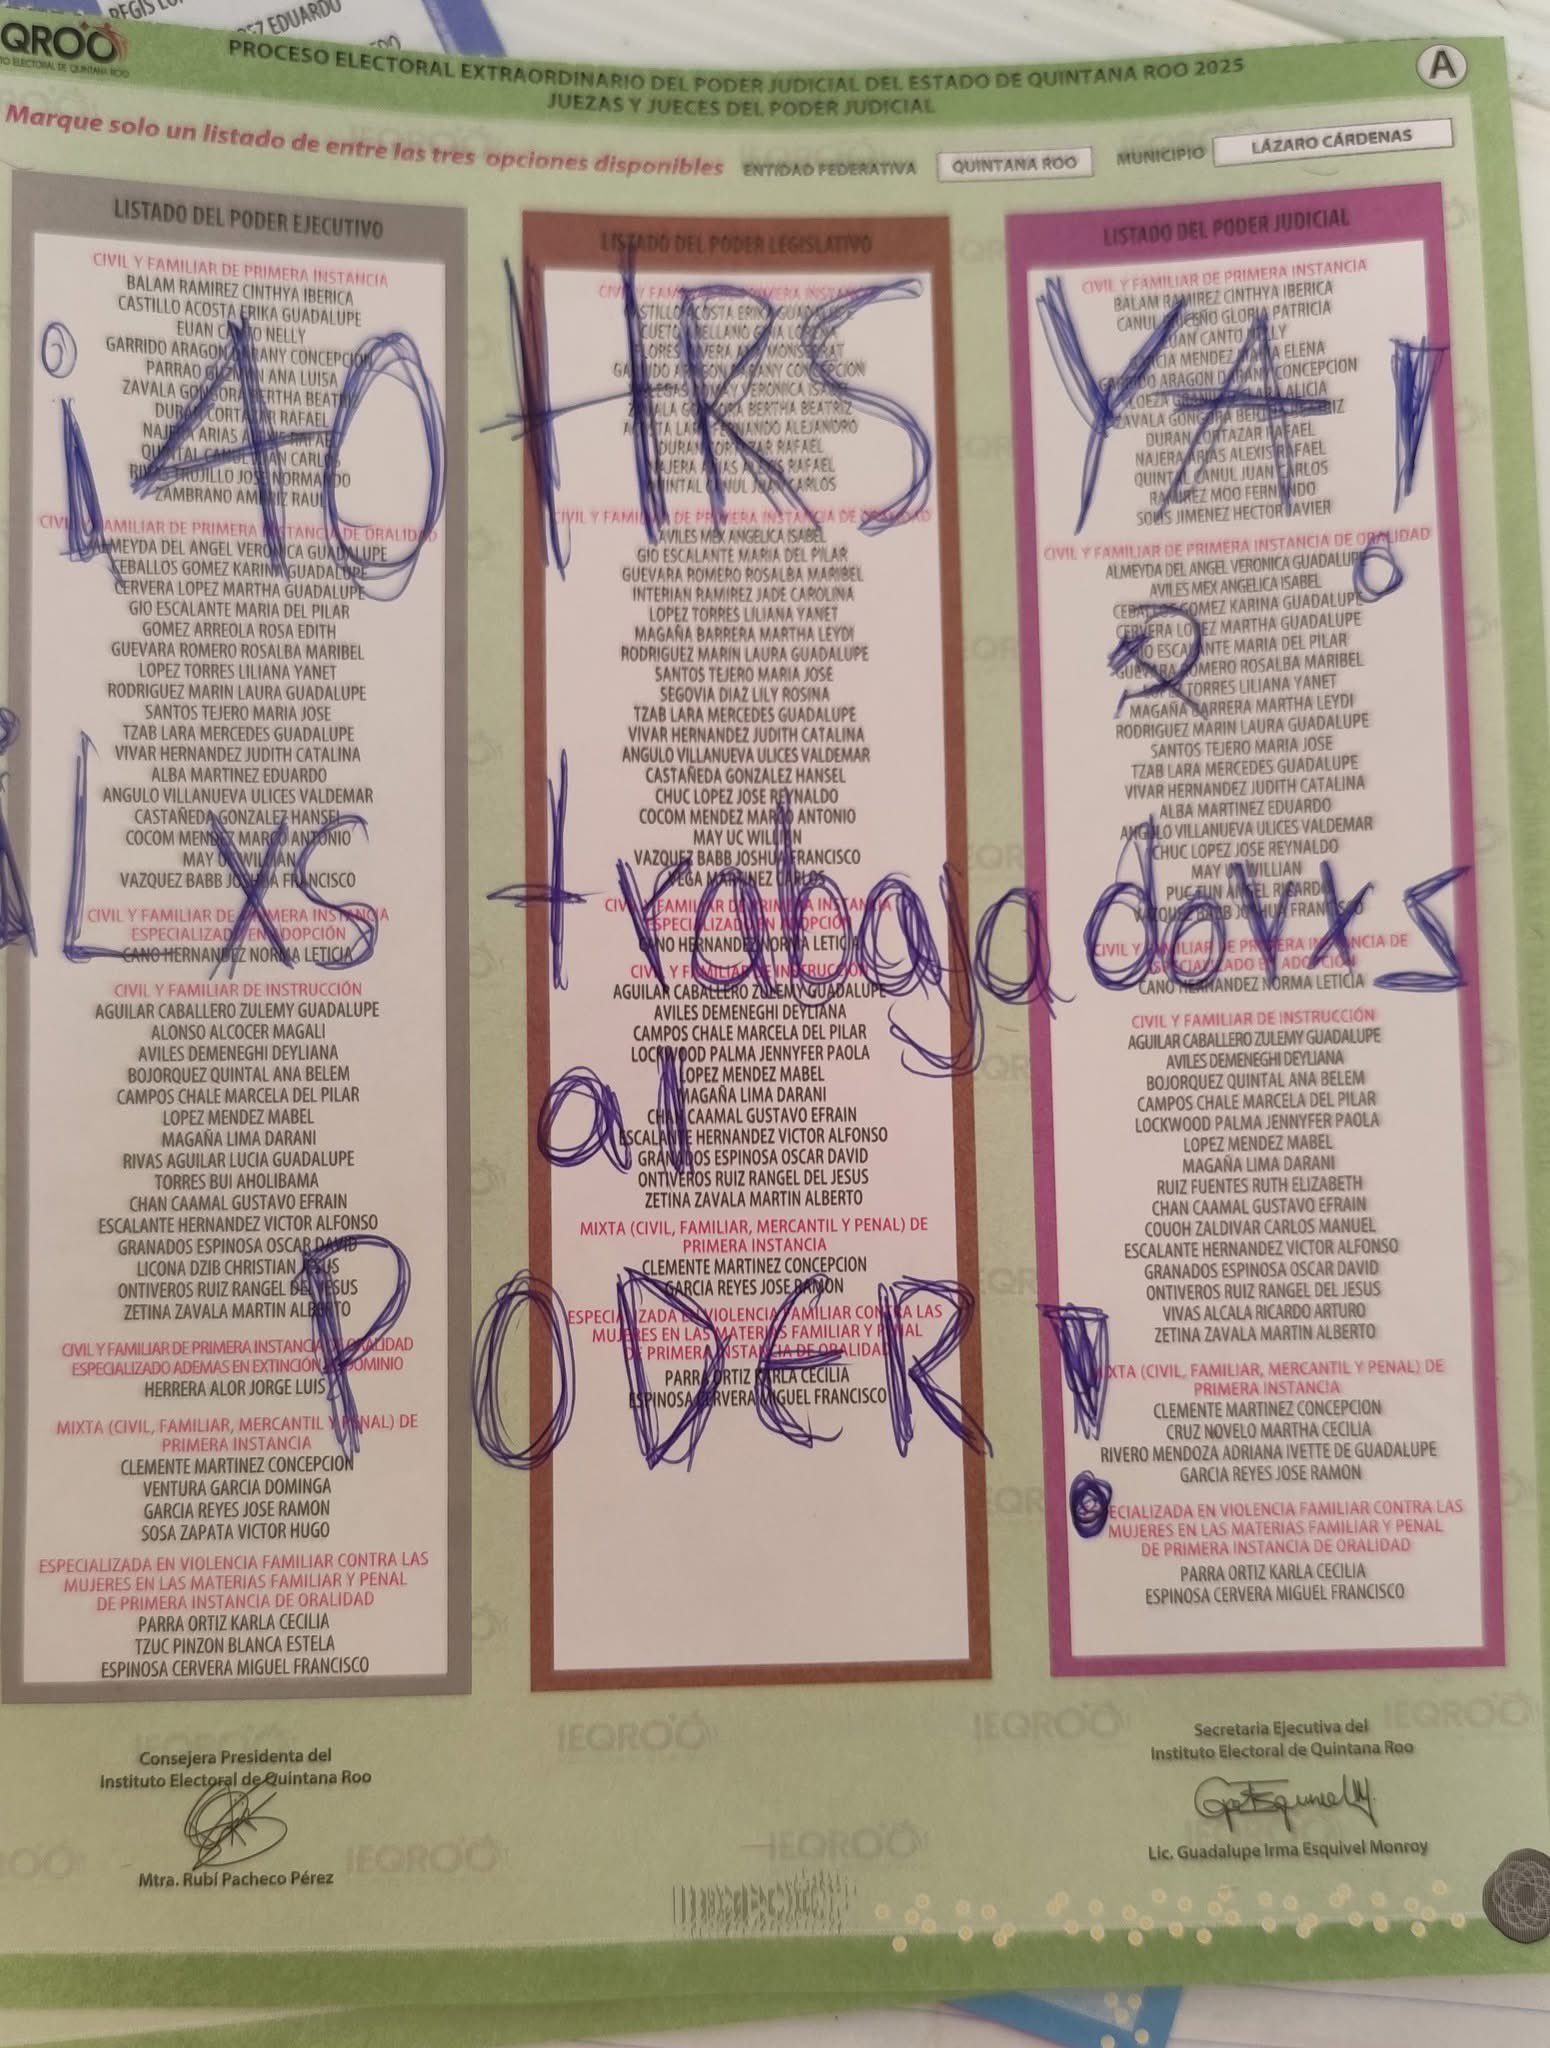 REGIS
EZ EDUARDO
QROO
INSTITUTO ELECTORAL DE QUINTANA ROO
PROCESO ELECTORAL EXTRAORDINARIO DEL PODER JUDICIAL DEL ESTADO DE QUINTANA ROO 2025
JUEZAS Y JUECES DEL PODER JUDICIAL
A
Marque solo un listado de entre las tres opciones disponibles
ENTIDAD FEDERATIVA
QUINTANA ROO
MUNICIPIO
LÁZARO CÁRDENAS
LISTADO DEL PODER EJECUTIVO
CIVIL Y FAMILIAR DE PRIMERA INSTANCIA
BALAM RAMIREZ CINTHYA IBERICA
CASTILLO ACOSTA ERIKA GUADALUPE
EUAN CANTO NELLY
GARRIDO ARAGON DARANY CONCEPCION
PARRAO GUZMAN ANA LUISA
ZAVALA GONGORA BERTHA BEATRIZ
DURAN CORTAZAR RAFAEL
NAJERA ARIAS ALEXIS RAFAEL
QUINTAL CANUL JUAN CARLOS
RIVAS TRUJILLO JOSE NORMANDO
ZAMBRANO AMERIZ RAUL
CIVIL Y FAMILIAR DE PRIMERA INSTANCIA DE ORALIDAD
ALMEYDA DEL ANGEL VERONICA GUADALUPE
CEBALLOS GOMEZ KARINA GUADALUPE
CERVERA LOPEZ MARTHA GUADALUPE
GIO ESCALANTE MARIA DEL PILAR
GOMEZ ARREOLA ROSA EDITH
GUEVARA ROMERO ROSALBA MARIBEL
LOPEZ TORRES LILIANA YANET
RODRIGUEZ MARIN LAURA GUADALUPE
SANTOS TEJERO MARIA JOSE
TZAB LARA MERCEDES GUADALUPE
VIVAR HERNANDEZ JUDITH CATALINA
ALBA MARTINEZ EDUARDO
ANGULO VILLANUEVA ULICES VALDEMAR
CASTAÑEDA GONZALEZ HANSEL
COCOM MENDEZ MARCO ANTONIO
MAY UC WILLIAN
VAZQUEZ BABB JOSHUA FRANCISCO
CIVIL Y FAMILIAR DE PRIMERA INSTANCIA
ESPECIALIZADO EN ADOPCIÓN
CANO HERNANDEZ NORMA LETICIA
CIVIL Y FAMILIAR DE INSTRUCCIÓN
AGUILAR CABALLERO ZULEMY GUADALUPE
ALONSO ALCOCER MAGALI
AVILES DEMENEGHI DEYLIANA
BOJORQUEZ QUINTAL ANA BELEM
CAMPOS CHALE MARCELA DEL PILAR
LOPEZ MENDEZ MABEL
MAGAÑA LIMA DARANI
RIVAS AGUILAR LUCIA GUADALUPE
TORRES BUI AHOLIBAMA
CHAN CAAMAL GUSTAVO EFRAIN
ESCALANTE HERNANDEZ VICTOR ALFONSO
GRANADOS ESPINOSA OSCAR DAVID
LICONA DZIB CHRISTIAN JESUS
ONTIVEROS RUIZ RANGEL DEL JESUS
ZETINA ZAVALA MARTIN ALBERTO
CIVIL Y FAMILIAR DE PRIMERA INSTANCIA DE ORALIDAD
ESPECIALIZADO ADEMAS EN EXTINCIÓN DE DOMINIO
HERRERA ALOR JORGE LUIS
MIXTA (CIVIL, FAMILIAR, MERCANTIL Y PENAL) DE
PRIMERA INSTANCIA
CLEMENTE MARTINEZ CONCEPCION
VENTURA GARCIA DOMINGA
GARCIA REYES JOSE RAMON
SOSA ZAPATA VICTOR HUGO
ESPECIALIZADA EN VIOLENCIA FAMILIAR CONTRA LAS
MUJERES EN LAS MATERIAS FAMILIAR Y PENAL
DE PRIMERA INSTANCIA DE ORALIDAD
PARRA ORTIZ KARLA CECILIA
TZUC PINZON BLANCA ESTELA
ESPINOSA CERVERA MIGUEL FRANCISCO
LISTADO DEL PODER LEGISLATIVO
CIVIL Y FAMILIAR DE PRIMERA INSTANCIA
CASTILLO ACOSTA ERIKA GUADALUPE
CUETO ARELLANO GINA LORENA
FLORES RIVERA ANA MONSERRAT
GARRIDO ARAGON DARANY CONCEPCION
VERONICA ISABEL
ZAVALA GONGORA BERTHA BEATRIZ
ACOSTA LARA FERNANDO ALEJANDRO
DURAN CORTAZAR RAFAEL
NAJERA ARIAS ALEXIS RAFAEL
QUINTAL CANUL JUAN CARLOS
CIVIL Y FAMILIAR DE PRIMERA INSTANCIA DE ORALIDAD
AVILES MEX ANGELICA ISABEL
GIO ESCALANTE MARIA DEL PILAR
GUEVARA ROMERO ROSALBA MARIBEL
INTERIAN RAMIREZ JADE CAROLINA
LOPEZ TORRES LILIANA YANET
MAGAÑA BARRERA MARTHA LEYDI
RODRIGUEZ MARIN LAURA GUADALUPE
SANTOS TEJERO MARIA JOSE
SEGOVIA DIAZ LILY ROSINA
TZAB LARA MERCEDES GUADALUPE
VIVAR HERNANDEZ JUDITH CATALINA
ANGULO VILLANUEVA ULICES VALDEMAR
CASTAÑEDA GONZALEZ HANSEL
CHUC LOPEZ JOSE REYNALDO
COCOM MENDEZ MARCO ANTONIO
MAY UC WILLIAN
VAZQUEZ BABB JOSHUA FRANCISCO
VEGA MARTINEZ CARLOS
CIVIL Y FAMILIAR DE PRIMERA INSTANCIA
ESPECIALIZADO EN ADOPCIÓN
CANO HERNANDEZ NORMA LETICIA
CIVIL Y FAMILIAR DE INSTRUCCIÓN
AGUILAR CABALLERO ZULEMY GUADALUPE
AVILES DEMENEGHI DEYLIANA
CAMPOS CHALE MARCELA DEL PILAR
LOCKWOOD PALMA JENNYFER PAOLA
LOPEZ MENDEZ MABEL
MAGAÑA LIMA DARANI
CHAN CAAMAL GUSTAVO EFRAIN
ESCALANTE HERNANDEZ VICTOR ALFONSO
GRANADOS ESPINOSA OSCAR DAVID
ONTIVEROS RUIZ RANGEL DEL JESUS
ZETINA ZAVALA MARTIN ALBERTO
MIXTA (CIVIL, FAMILIAR, MERCANTIL Y PENAL) DE
PRIMERA INSTANCIA
CLEMENTE MARTINEZ CONCEPCION
GARCIA REYES JOSE RAMON
ESPECIALIZADA EN VIOLENCIA FAMILIAR CONTRA LAS
MUJERES EN LAS MATERIAS FAMILIAR Y PENAL
DE PRIMERA INSTANCIA DE ORALIDAD
PARRA ORTIZ KARLA CECILIA
ESPINOSA CERVERA MIGUEL FRANCISCO
LISTADO DEL PODER JUDICIAL
CIVIL Y FAMILIAR DE PRIMERA INSTANCIA
BALAM RAMIREZ CINTHYA IBERICA
CANUL BRICEÑO GLORIA PATRICIA
EUAN CANTO NELLY
GARCIA MENDEZ MARIA ELENA
GARRIDO ARAGON DARANY CONCEPCION
LOEZA GRANIEL CLARA ALICIA
ZAVALA GONGORA BERTHA BEATRIZ
DURAN CORTAZAR RAFAEL
NAJERA ARIAS ALEXIS RAFAEL
QUINTAL CANUL JUAN CARLOS
RAMIREZ MOO FERNANDO
SOLIS JIMENEZ HECTOR JAVIER
CIVIL Y FAMILIAR DE PRIMERA INSTANCIA DE ORALIDAD
ALMEYDA DEL ANGEL VERONICA GUADALUPE
AVILES MEX ANGELICA ISABEL
CEBALLOS GOMEZ KARINA GUADALUPE
CERVERA LOPEZ MARTHA GUADALUPE
GIO ESCALANTE MARIA DEL PILAR
GUEVARA ROMERO ROSALBA MARIBEL
LOPEZ TORRES LILIANA YANET
MAGAÑA BARRERA MARTHA LEYDI
RODRIGUEZ MARIN LAURA GUADALUPE
SANTOS TEJERO MARIA JOSE
TZAB LARA MERCEDES GUADALUPE
VIVAR HERNANDEZ JUDITH CATALINA
ALBA MARTINEZ EDUARDO
ANGULO VILLANUEVA ULICES VALDEMAR
CHUC LOPEZ JOSE REYNALDO
MAY UC WILLIAN
PUC TUN ANGEL RICARDO
VAZQUEZ BABB JOSHUA FRANCISCO
CIVIL Y FAMILIAR DE PRIMERA INSTANCIA DE
ESPECIALIZADO EN ADOPCIÓN
CANO HERNANDEZ NORMA LETICIA
CIVIL Y FAMILIAR DE INSTRUCCIÓN
AGUILAR CABALLERO ZULEMY GUADALUPE
AVILES DEMENEGHI DEYLIANA
BOJORQUEZ QUINTAL ANA BELEM
CAMPOS CHALE MARCELA DEL PILAR
LOCKWOOD PALMA JENNYFER PAOLA
LOPEZ MENDEZ MABEL
MAGAÑA LIMA DARANI
RUIZ FUENTES RUTH ELIZABETH
CHAN CAAMAL GUSTAVO EFRAIN
COUOH ZALDIVAR CARLOS MANUEL
ESCALANTE HERNANDEZ VICTOR ALFONSO
GRANADOS ESPINOSA OSCAR DAVID
ONTIVEROS RUIZ RANGEL DEL JESUS
VIVAS ALCALA RICARDO ARTURO
ZETINA ZAVALA MARTIN ALBERTO
MIXTA (CIVIL, FAMILIAR, MERCANTIL Y PENAL) DE
PRIMERA INSTANCIA
CLEMENTE MARTINEZ CONCEPCION
CRUZ NOVELO MARTHA CECILIA
RIVERO MENDOZA ADRIANA IVETTE DE GUADALUPE
GARCIA REYES JOSE RAMON
ESPECIALIZADA EN VIOLENCIA FAMILIAR CONTRA LAS
MUJERES EN LAS MATERIAS FAMILIAR Y PENAL
DE PRIMERA INSTANCIA DE ORALIDAD
PARRA ORTIZ KARLA CECILIA
ESPINOSA CERVERA MIGUEL FRANCISCO
¡40 HRS YA!
¡Lxs trabajadorxs
al
PODER!
Consejera Presidenta del
Instituto Electoral de Quintana Roo
Mtra. Rubí Pacheco Pérez
Secretaria Ejecutiva del
Instituto Electoral de Quintana Roo
Lic. Guadalupe Irma Esquivel Monroy
IEQROO IEQROO IEQROO
IEQROO IEQROO